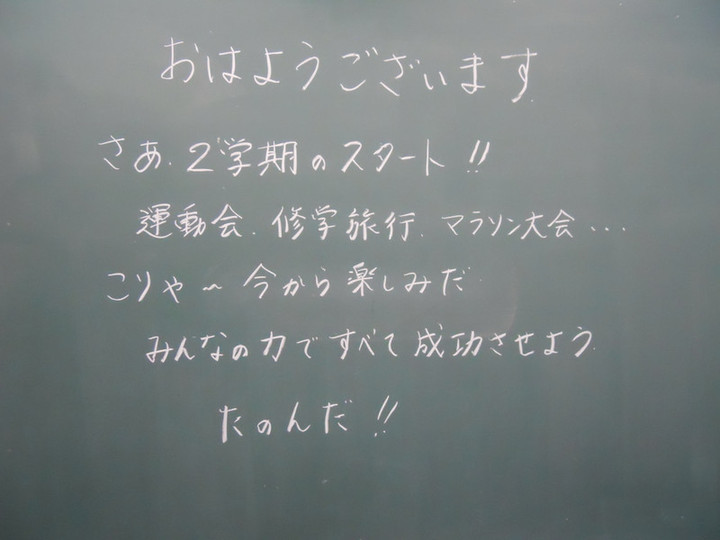 おはようございます
さあ、2学期のスタート!!
運動会、修学旅行、マラソン大会...
こりゃ~今から楽しみだ
みんなの力ですべて成功させよう
たのんだ!!